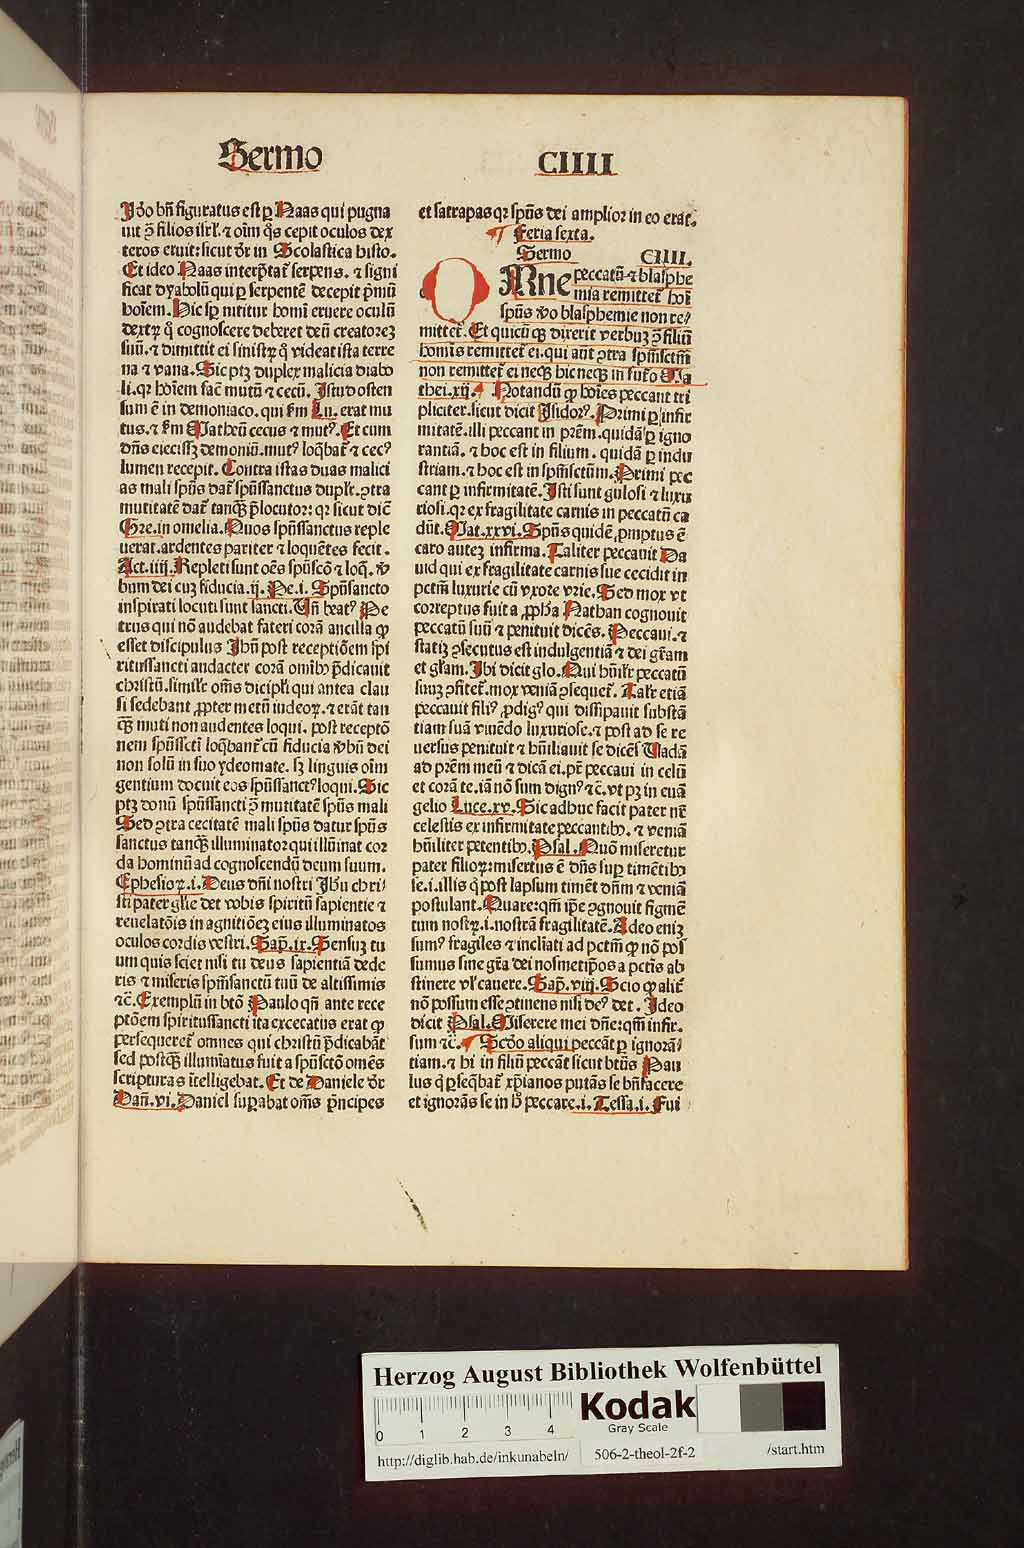 Sermo CIIII
Iđo bñ figuratus est ꝑ Naas qui pugna
uit ꝯ̄ filios isrl̃. ⁊ oĩm q̃s cepit oculos dex
teros eruit: sicut dr̃ in Scolastica histo.
Et ideo Naas interp̃tat̃ serpens. ⁊ signi
ficat dyabolũ qui ꝑ serpentẽ decepit p̃mũ
hoĩem. Hic sꝑ nititur homĩ eruere oculũ
dextꝝ q̃ cognoscere deberet deũ creatorez
suũ. ⁊ dimittit ei sinistꝝ q̃ videat ista terre
na ⁊ vana. Sic ptꝫ duplex malicia diabo
li. qꝛ hoĩem facit mutũ ⁊ cecũ. Istud osten
sum ẽ in demoniaco. qui s̃m Lu. erat mu
tus. ⁊ s̃m Matheũ cecus ⁊ mutꝰ. Et cum
dñs eiecissꝫ demoniũ. mutꝰ loq̃bat̃ ⁊ cecꝰ
lumen recepit. Contra istas duas malici
as mali spũs dat̃ spũssanctus duplr̃. ꝯtra
mutitatẽ dat̃ tanq̃ꝫ p̃locutor: qꝛ sicut dic̃
Gre. in omelia. Quos spũssanctus reple
uerat. ardentes pariter ⁊ loquẽtes fecit.
Act. iiij. Repleti sunt oẽs spũscõ ⁊ loq̃. v̾
bum dei cuꝫ fiducia. ij. Pe. i. Spũsancto
inspirati locuti sunt sancti. Uñ beatꝰ Pe
trus qui nõ audebat fateri corã ancilla ꝙ
esset discipulus Ihũ post receptiõem spi
ritussancti audacter corã omĩbꝫ p̃dicauit
christũ. similr̃ om̃s dicipl̃i qui antea clau
si sedebant ꝓpter metũ iudeoꝝ. ⁊ erãt tan
q̃ꝫ muti non audentes loqui. post receptõ
nem spũssctĩ loq̃bant̃ cũ fiducia v̾bũ dei
non solũ in suo ydeomate. sꝫ linguis oĩm
gentium docuit eos spũssanctꝰ loqui. Sic
ptꝫ donũ spũssancti ꝯ̃ mutitatẽ spũs mali
Sed ꝯtra cecitatẽ mali spũs datur spũs
sanctus tanq̃ꝫ illuminator qui illũinat cor
da hominũ ad cognoscendũ deum suum.
Ephesioꝝ. i. Deus dñi nostri Ihũ chri⸗
sti pater gl̃ie det vobis spiritũ sapientie ⁊
reuelatõis in agnitiõeꝫ eius illuminatos
oculos cordis vestri. Sap̃. ix. Sensuꝫ tu
um quis sciet nisi tu deus sapientiã dede
ris ⁊ miseris spm̃sanctũ tuũ de altissimis
⁊c̃. Exemplũ in btõ Paulo qñ ante rece
ptõem spiritussancti ita excecatus erat ꝙ
persequeret̃ omnes qui christũ p̃dicabãt
sed postq̃ꝫ illumĩatus fuit a spũsctõ om̃es
scripturas ĩtelligebat. Et de Daniele dr̃
Dañ. vi. Daniel suꝑabat om̃s p̃ncipes
et satrapas qꝛ spũs dei amplior in eo erat.
¶ Feria sexta.
Sermo CIIII.
OMne peccatũ ⁊ blasphe
mia remittet̃ hoĩ
spũs v̾o blasphemie non re⸗
mittet̃. Et quicũqꝫ dixerit verbuꝫ ꝯ̃ filiũ
homĩs remittet̃ ei. qui aũt ꝯtra spm̃sctm̃
non remittet̃ ei neqꝫ hic neqꝫ in fut̃o Ma
thei. xij. ¶ Notandũ ꝙ hoĩes peccant tri
pliciter. sicut dicit Isidorꝰ. Primi ꝑ infir
mitatẽ. illi peccant in pr̃em. quidã ꝑ igno
rantiã. ⁊ hoc est in filium. quidã ꝑ indu
striam. ⁊ hoc est in spm̃sctũm. Primi pec
cant ꝑ infirmitatẽ. Isti sunt gulosi ⁊ luxu
riosi. qꝛ ex fragilitate carnis in peccatũ ca
dũt. Mat. xxvi. Spũs quidẽ ꝓmptus ẽ
caro autez infirma. Taliter peccauit Da
uid qui ex fragilitate carnis sue cecidit in
pctm̃ luxurie cũ vxore vrie. Sed mox vt
correptus fuit a ꝓpha Nathan cognouit
peccatũ suũ ⁊ penituit dicẽs. Peccaui. ⁊
statiꝫ ꝯsecutus est indulgentiã ⁊ dei gr̃am
et gl̃am. Ibi dicit glo. Qui hũilr̃ peccatũ
suuꝫ ꝯfitet̃. mox veniã ꝯsequet̃. Talr̃ etiã
peccauit filiꝰ ꝓdigꝰ qui dissipauit substã
tiam suã viuẽdo luxuriose. ⁊ post ad se re
uersus penituit ⁊ hũiliauit se dicẽs Uadã
ad pr̃em meũ ⁊ dicã ei. pr̃ peccaui in celũ
et corã te. iã nõ sum dignꝰ ⁊c̃. vt pꝫ in euã
gelio Luce. xv. Sic adhuc facit pater nr̃
celestis ex infirmitate peccantibꝫ. ⁊ veniã
hũiliter petentibꝫ. Psal. Quõ miseretur
pater filioꝝ: misertus ẽ dñs suꝑ timẽtibꝫ
se. i. illis q̃ post lapsum timẽt dñm ⁊ veniã
postulant. Quare: qm̃ ip̃e ꝯgnouit figmẽ
tum nostꝝ. i. nostrã fragilitatẽ. Adeo eniꝫ
sumꝰ fragiles ⁊ incliati ad pctm̃ ꝙ nõ pos
sumus sine gr̃a dei nosmetip̃os a pctĩs ab
stinere vl̃ cauere. Sap̃. viij. Scio ꝙ alit̃
nõ possum esse ꝯtinens nisi deꝰ det. Ideo
dicit Psal. Miserere mei dñe: qm̃ infir.
sum ⁊c̃. ¶ Scđo aliqui peccãt ꝑ ignorã⸗
tiam. ⁊ hi in filiũ peccãt sicut btũs Pau
lus q̃ ꝑseq̃bat̃ xp̃ianos putãs se bñfacere
et ignorãs se in h̾ peccare. i. Tessa. i. Fui
Herzog August Bibliothek Wolfenbüttel
Kodak
Gray Scale
0 1 2 3 4
http://diglib.hab.de/inkunabeln/ 506-2-theol-2f-2 /start.htm